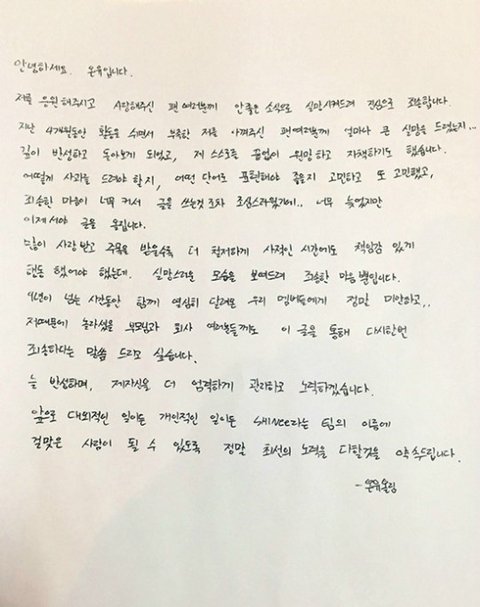 안녕하세요. 온유입니다.
저를 응원해주시고 사랑해주신 팬 여러분께 안 좋은 소식으로 실망시켜드려 진심으로 죄송합니다.
지난 4개월동안 활동을 쉬면서 부족한 저를 아껴주신 팬 여러분께 얼마나 큰 실망을 드렸는지...
깊이 반성하고 돌아보게 되었고, 제 스스로를 끝없이 원망하고 자책하기도 했습니다.
어떻게 사과를 드려야 할지, 어떤 단어로 표현해야 좋을지 고민하고 또 고민했고,
죄송한 마음이 너무 커서 글을 쓰는것 조차 조심스러웠기에.. 너무 늦었지만
이제서야 글을 올립니다.
많이 사랑 받고 주목을 받을수록 더 철저하게 사적인 시간에도 책임감 있게
행동 했어야 했는데. 실망스러운 모습을 보여드려 죄송한 마음 뿐입니다.
9년이 넘는 시간동안 함께 열심히 달려온 우리 멤버들에게 정말 미안하고,.
저때문에 놀라셨을 부모님과 회사 여러분들께도 이 글을 통해 다시한번
죄송하다는 말씀 드리고 싶습니다.
늘 반성하며, 제자신을 더 엄격하게 관리하고 노력하겠습니다.
앞으로 대외적인 일이든 개인적인 일이든 SHINee라는 팀의 이름에
걸맞은 사람이 될 수 있도록 정말 최선의 노력을 다할것을 약속드립니다.
-온유올림